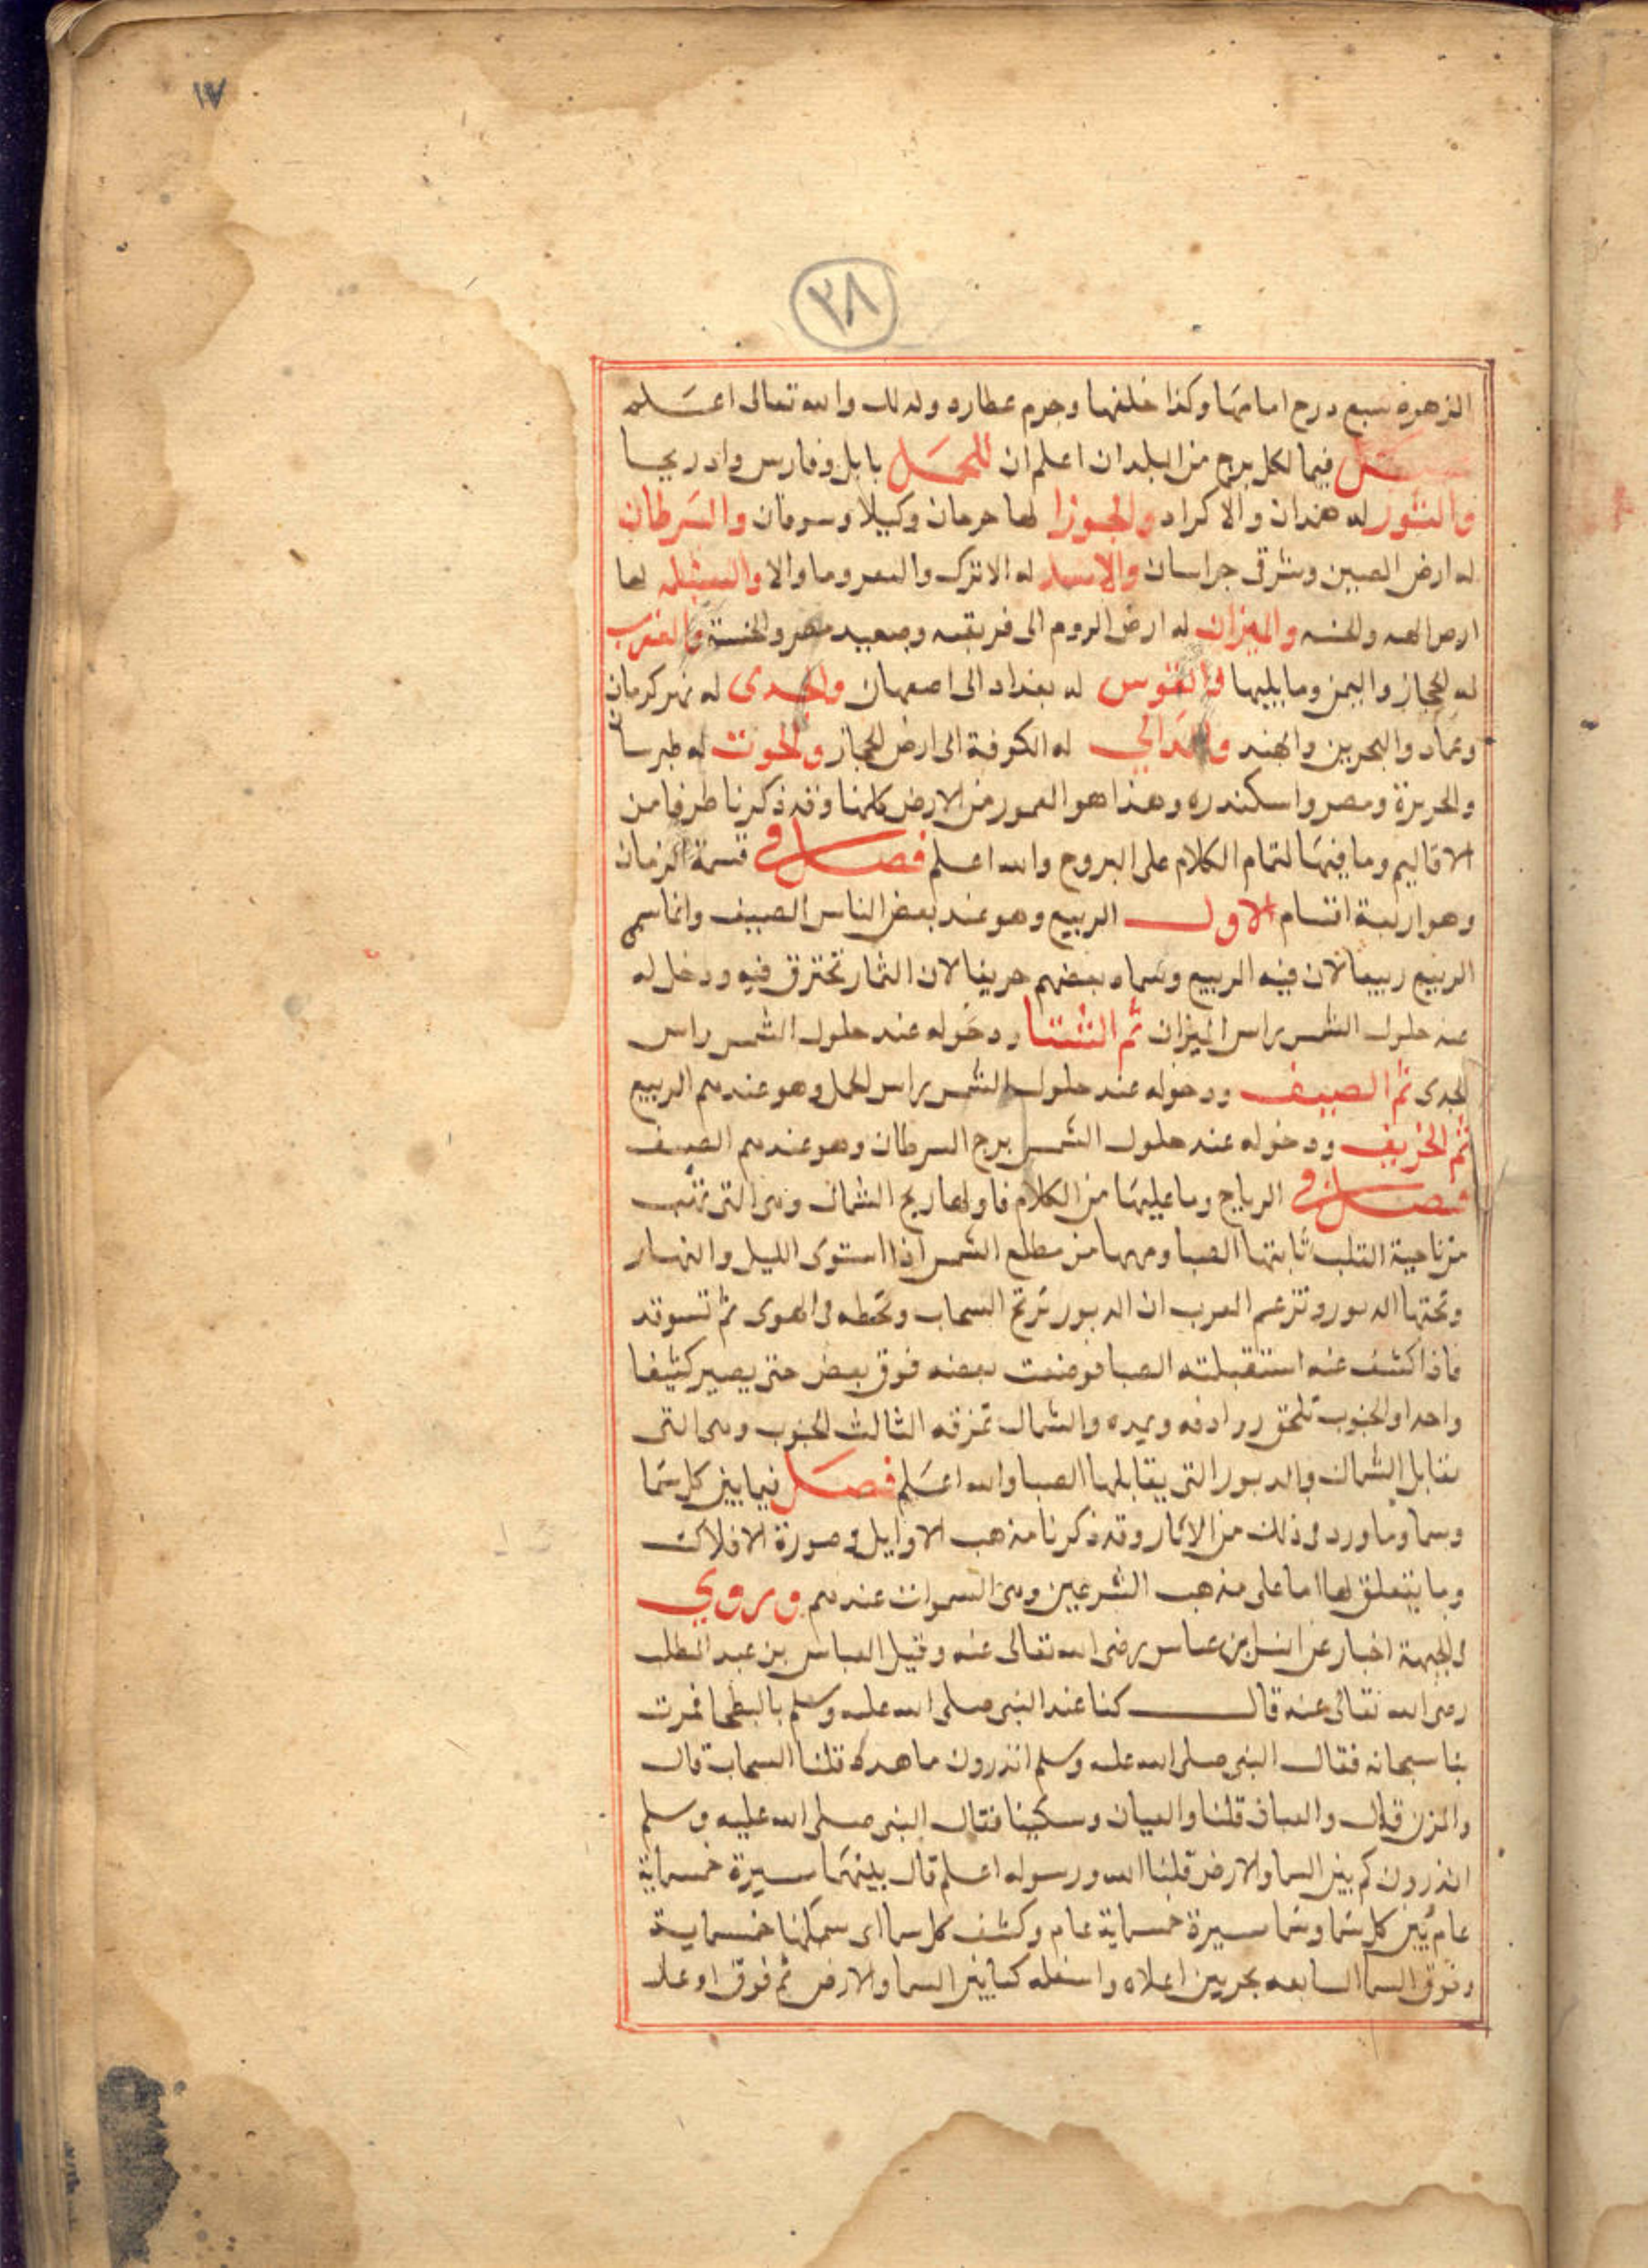 ١٧
٣٨
الزهرة سبع درج امامها وكذا خلفها وجرم عطارد وله لك والله تعالى اعلم
فصل فيما لكل برج من البلدان اعلم ان للحمل بابل وفارس وادربيجا
والثور له همدان والاكراد والجوزا لها جرجان وكيلا وسوقان والسرطان
له ارض الصين وشرقى خراسان والاسد له الاترك والصغر وما والا والسنبله لها
له ارض الروم الى فريقيه وصعيد مصر والحبشة والعقرب والميزان
له الحجاز واليمن وما يليها والقوس له بغداد الى اصبهان والجدى له نهر كرمان
وعمان والبحرين والهند والدالي له الكوفة الى ارض الحجاز والحوت له طبرسان
والجزيرة ومصر واسكندريه وهذا هو العمور من الارض كلها وقد ذكرنا طرفا من
الاقاليم وما فيها لتمام الكلام على البروج والله اعلم فصل في قسمة الزمان
وهو اربعة اقسام الاول الربيع وهو عند بعض الناس الصيف وانما سمى
الربيع ربيعا لان فيه الربيع وسماه بعضهم خريفا لان الثمار تخترق فيه ودخل له
عند حلول الشمس براس الميزان ثم الشتا ودخوله عند حلول الشمس راس
الجدى ثم الصيف ودخوله عند حلول الشمس براس الحمل وهو عندهم الربيع
ثم الخريف ودخوله عند حلول الشمس برج السرطان وهو عندهم الصيف
فصل في الرياح وما عليها من الكلام فاولها ريح الشمال وهى التى تهب
من ناحية القلب ثانيتها الصبا ومهبها من مطلع الشمس اذا استوى الليل والنهار
وتحتها الدبور وتزعم العرب ان الدبور ترتج السحاب وتحطه فى الهوى ثم تسوقه
فاذا كشف عنه استقبلته الصبا فوضعت بعضه فوق بعض حتى يصير كثيفا
واحدا والجنوب تلحق روادفه ويمده والشمال تمزقه الثالث الجنوب وهى التى
تقابل الشمال والدبور التى يقابلها الصبا والله اعلم فصل فيما بين كل سما
وسما وما ورد فى ذلك من الاثار وقد ذكرنا مذهب الاوايل فى صورة الافلاك
وما يتعلق لها اما على مذهب الشرعيين وهى السموات عندهم وروي
اخبار عن ابن عباس رضى الله تعالى عنه وقيل العباس بن عبد المطلب
رضى الله تعالى عنه قال كنا عند النبى صلى الله عليه وسلم بالبطحا فمرت
بنا سحابه فقال النبى صلى الله عليه وسلم اتدرون ما هذه قلنا السحاب قال
والمزن قال والعنان قلنا والعيان وسكتنا فقال النبى صلى الله عليه وسلم
اتدرون كم بين السما والارض قلنا الله ورسوله اعلم قال بينهما سيرة خمسماية
عام بين كل سما وسما سيرة خمسماية عام وكشف كل سما اى سمكها خمسماية
وفوق السما السابعه بحر بين اعلاه واسفله كما بين السما والارض ثم فوق اوعلا